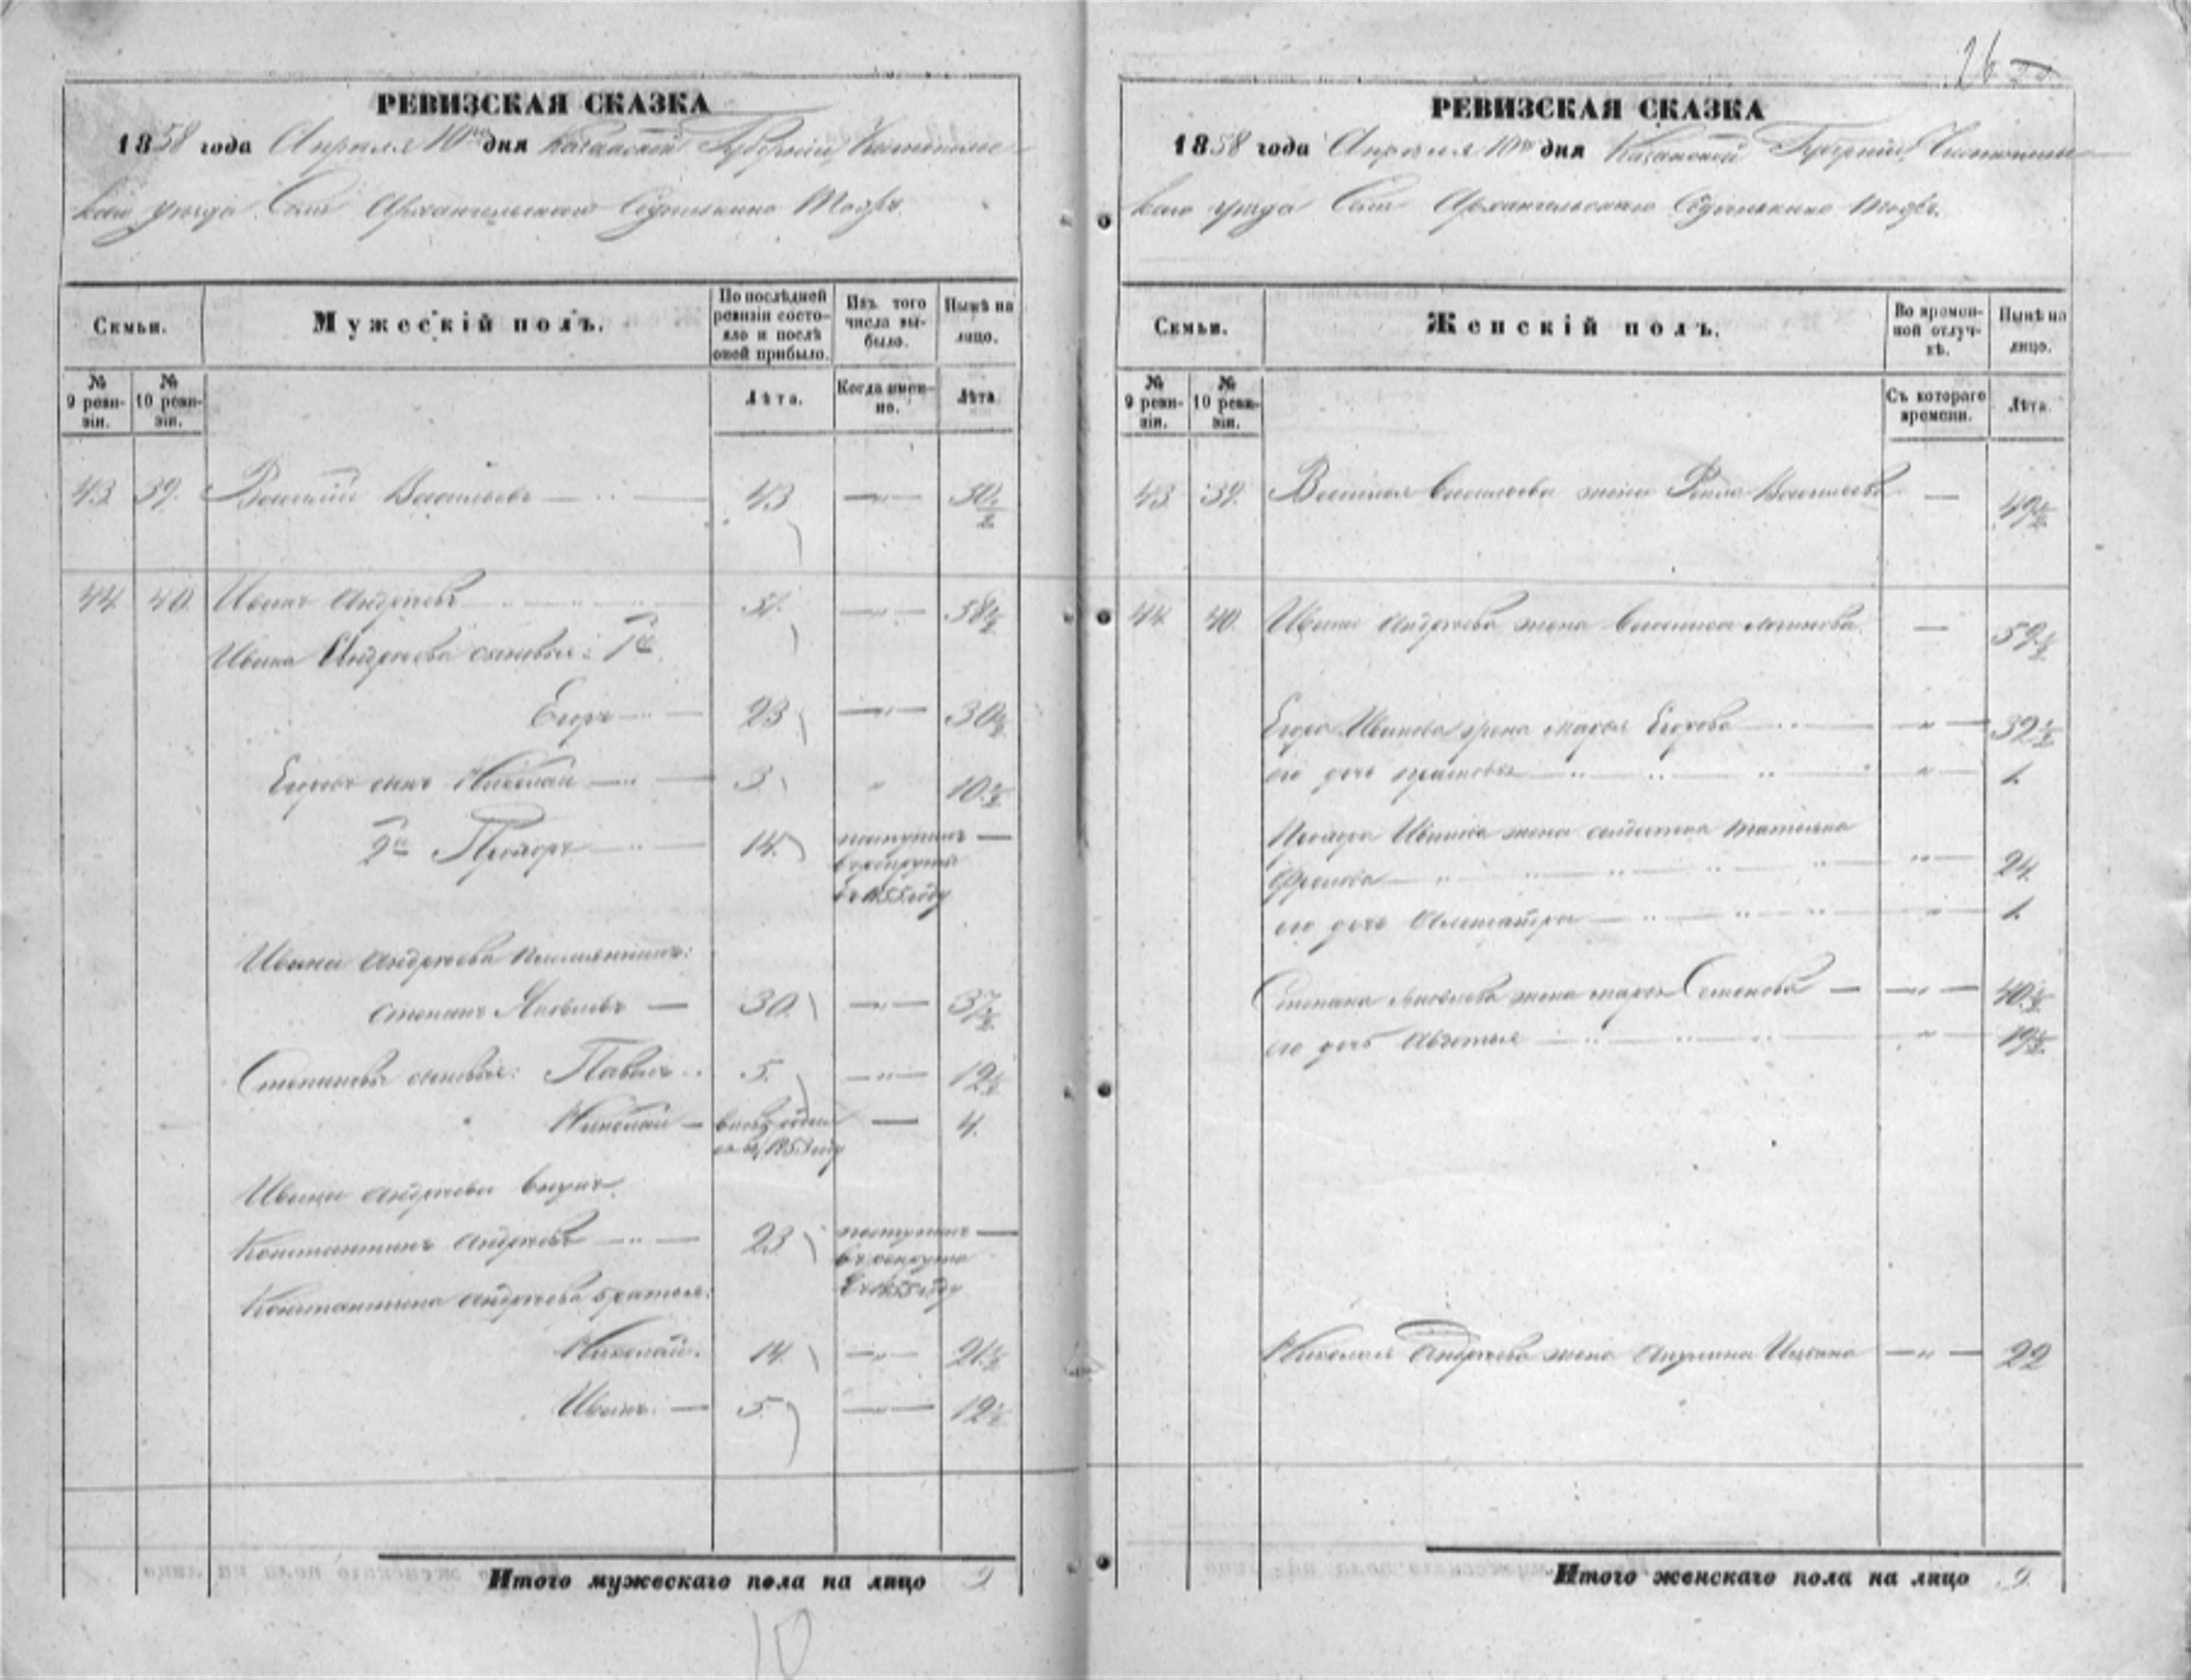 26
РЕВИЗСКАЯ СКАЗКА
1858 года Апреля 10го дня Казанской Губернiи Чистополь-
скаго уѣзда Села Архангельскаго
Семьи.
Мужескiй полъ.
По послѣдней ревизiи состояло и послѣ оной прибыло.
Изъ того числа выбыло.
Нынѣ на лицо.
№ 9 ревизiи.
№ 10 ревизiи.
Лѣта.
Когда именно.
Лѣта.
43. 39. Василiй Васильевъ 43 50 1/2
44. 40. Иванъ Андреевъ 51. 58 1/2
Ивана Андреева сыновья: 1й
Егоръ 23 30 1/2
Егоровъ сынъ Николай 3 10 1/2
2й Прохоръ 14. поступилъ
в рекруты
въ 1855 году
Ивана Андреева племянникъ:
Степанъ Яковлевъ 30. 37 1/2
Степановы сыновья: Павелъ 5. 12 1/2
Николай 4.
Ивана Андреева внукъ
Константинъ Андреевъ 23 поступилъ
въ рекруты
въ 1855 году
Константина Андреева братья:
Николай. 14. 21 1/2
Иванъ. 5. 12 1/2
Итого мужескаго пола на лицо 9
10
РЕВИЗСКАЯ СКАЗКА
1858 года Апреля 10го дня Казанской Губернiи Чистополь-
скаго уѣзда Села Архангельскаго
Семьи.
Женскiй полъ.
Во временной отлучкѣ.
Нынѣ на лицо.
№ 9 ревизiи.
№ 10 ревизiи.
Съ котораго времени.
Лѣта.
43. 39. Василья Васильева жена Васильева 49 1/2
44. 40. Ивана Андреева жена Василиса 59 1/2
Егора Иванова жена Марья Егорова 32 1/2
его дочь 1.
Прохора Иванова жена солдатка Татьяна
24.
его дочь 1.
Степана Яковлева жена Марья Семенова 40 1/2
его дочь Авдотья 19 1/2
Николая Андреева жена Акулина 22
Итого женскаго пола на лицо 9.